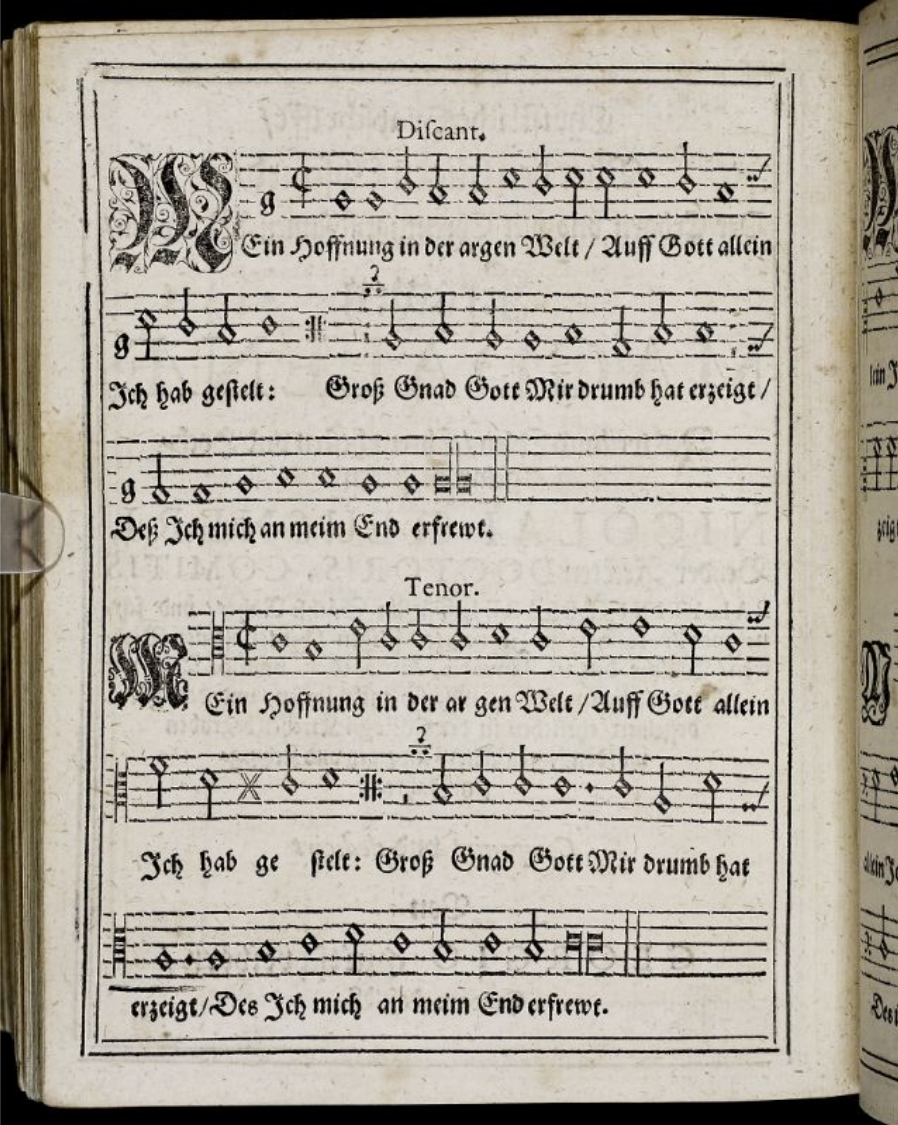 Discant.
MEin Hoffnung in der argen Welt / Auff Gott allein
Ich hab gestelt: Groß Gnad Gott Mir drumb hat erzeigt /
Deß Ich mich an meim End erfrewt.
Tenor.
MEin Hoffnung in der ar gen Welt / Auff Gott allein
Ich hab ge stelt: Groß Gnad Gott Mir drumb hat
erzeigt / Des Ich mich an meim End erfrewt.